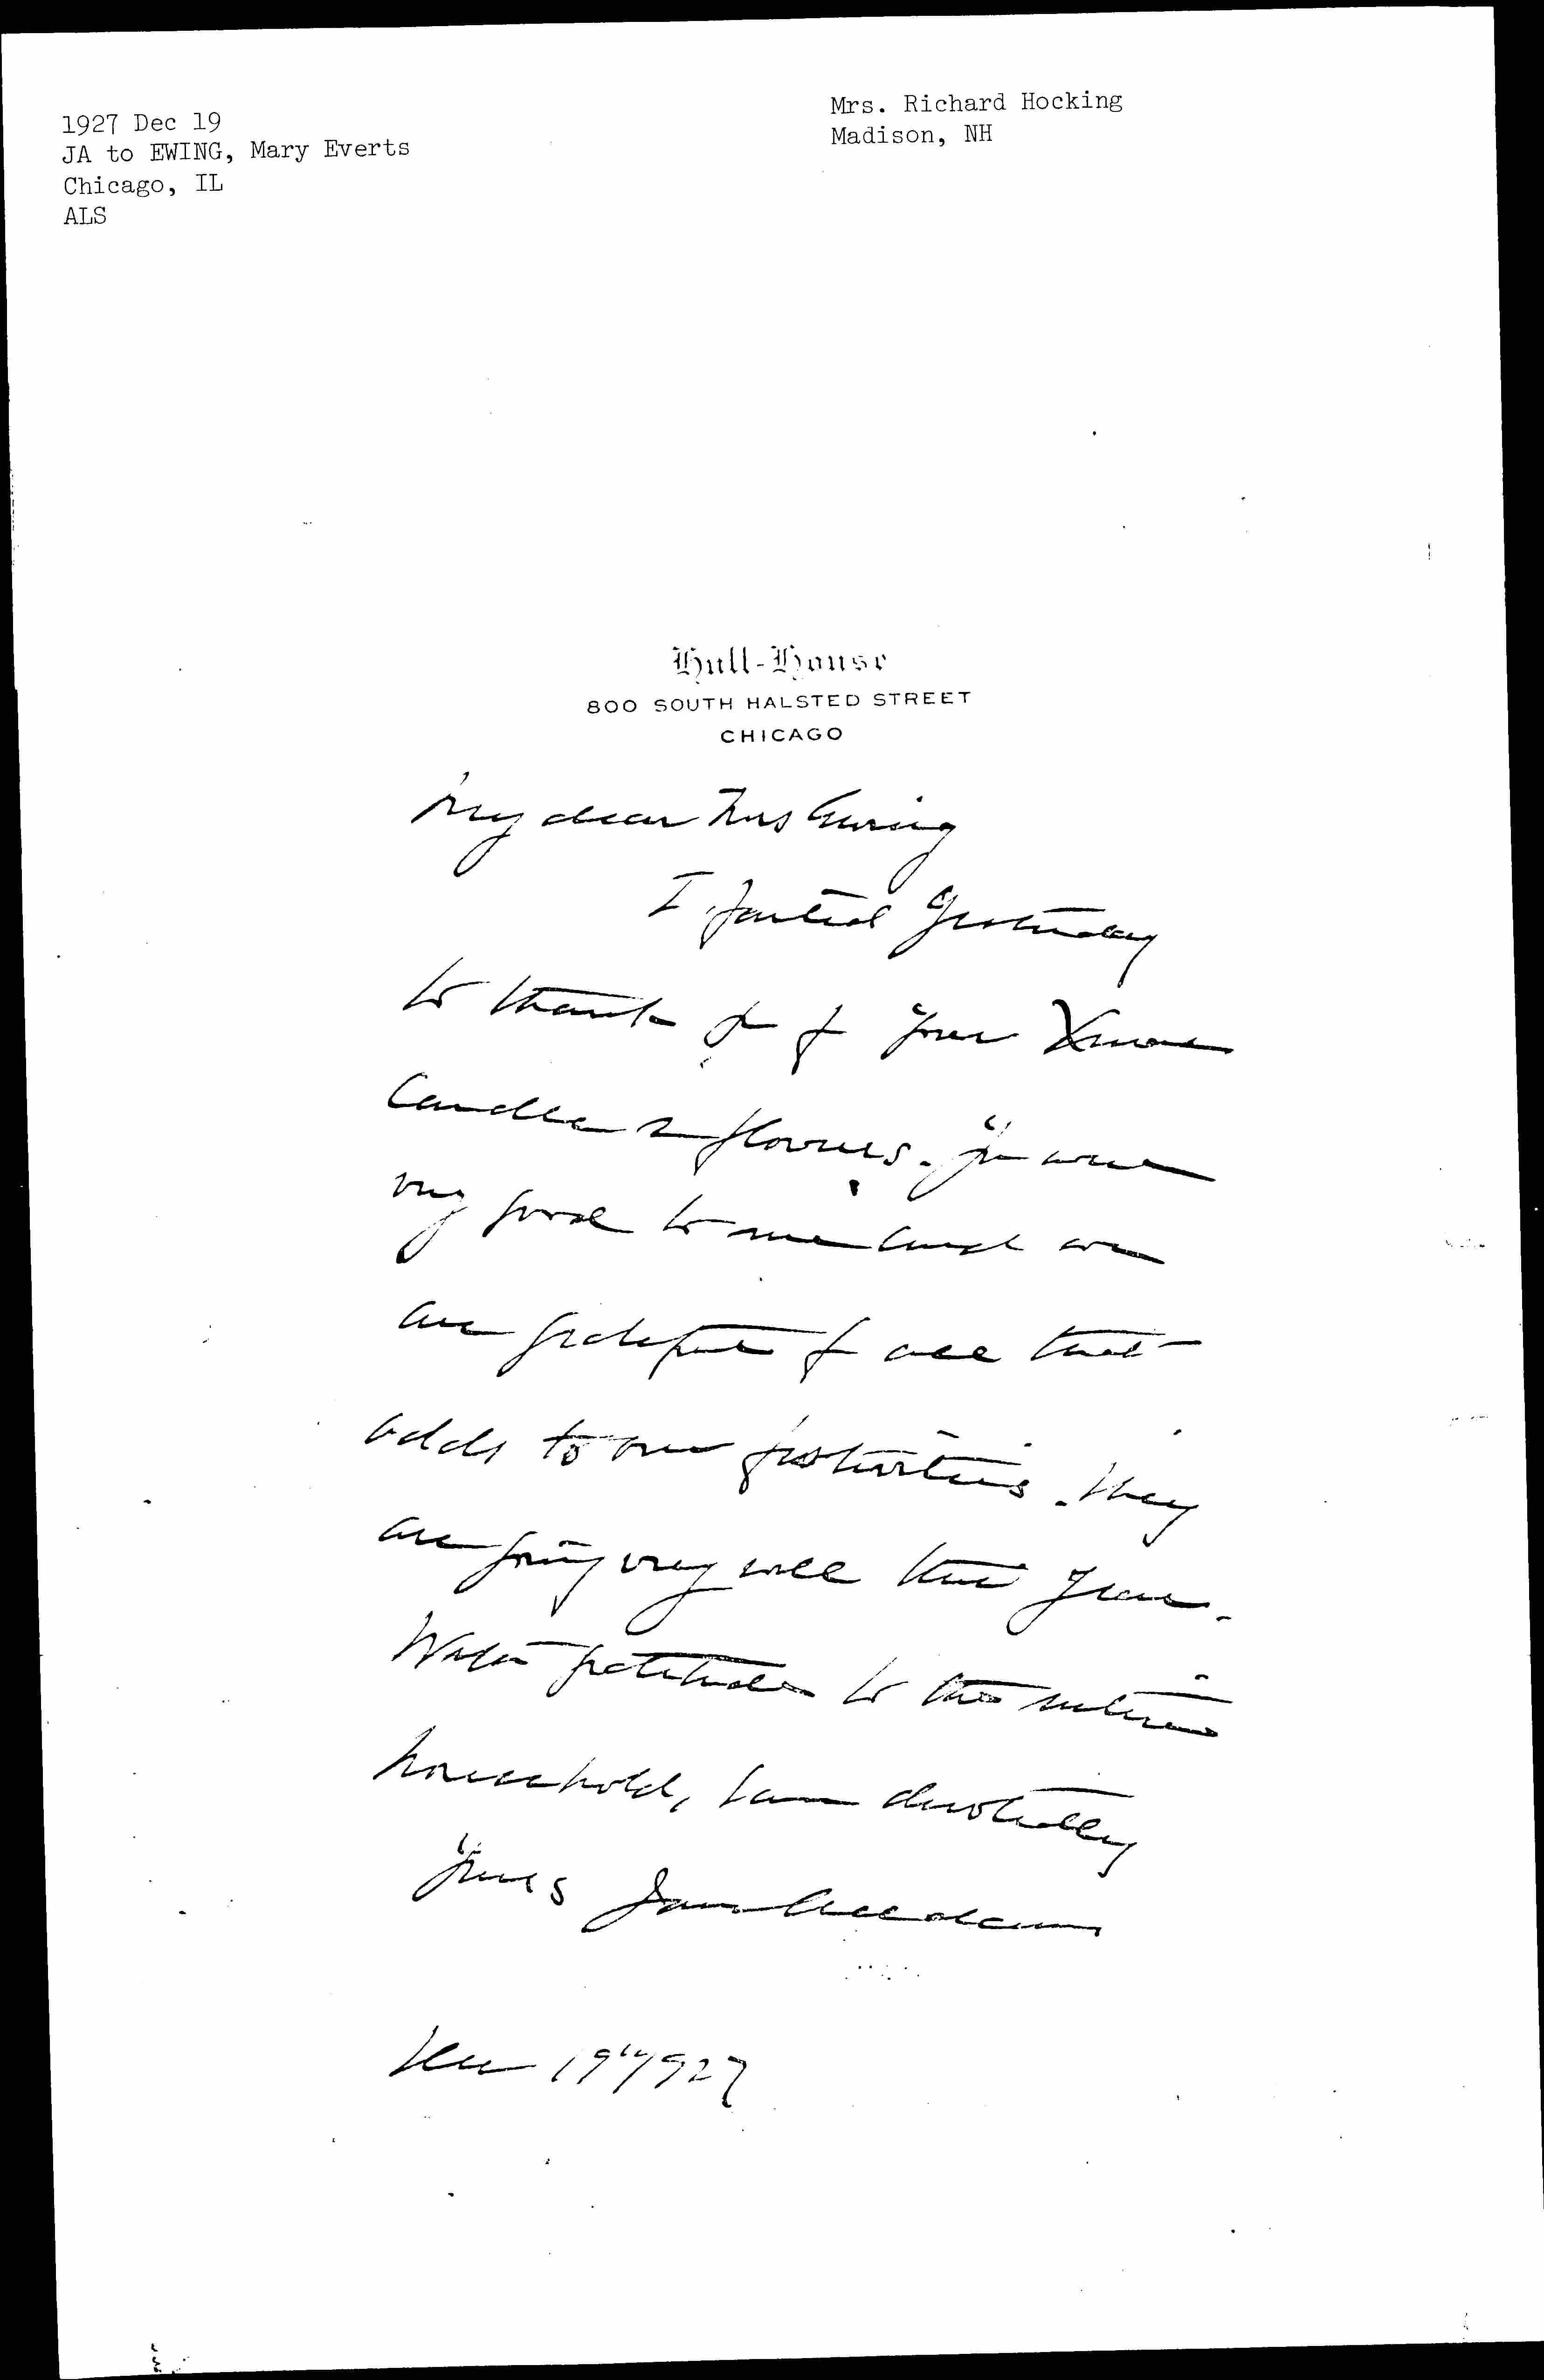 1927 Dec 19
JA to EWING, Mary Everts
Chicago, IL
ALS
Mrs. Richard Hocking
Madison, NH
Hull-House
800 SOUTH HALSTED STREET
CHICAGO
My dear Mrs Ewing
I failed yesterday
to thank you for your Xmas
Candles & flowers. You were
very good to me and we
are grateful for all that
adds to our festivities. They
are going very well this year.
With gratitude to the entire
household, I am devotedly
yours Jane Addams
Dec 19" 1927